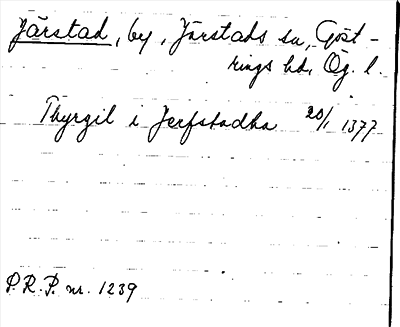 Järstad, by, Järstads sn, Göst-
rings hd, Ög. l.
Thyrgil i Jerfstadha 20/1 1377
P.R.P. nr. 1239